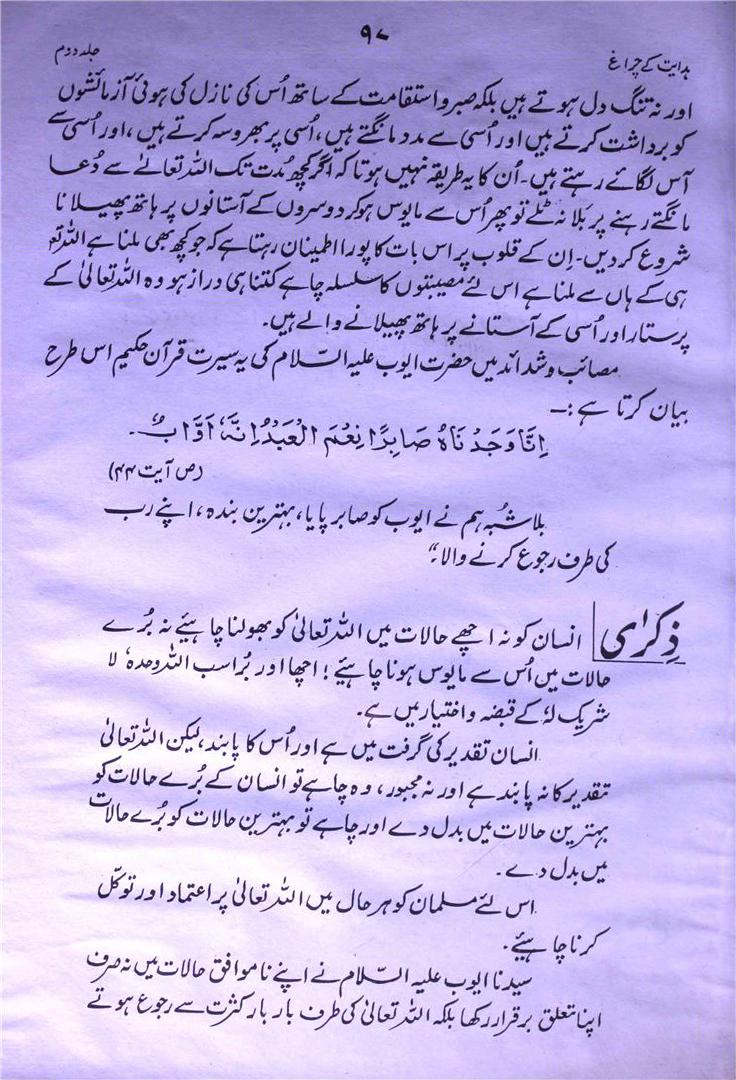 ۹۷
ہدایت کے چراغ
جلد دوم
اور نہ تنگ دل ہوتے ہیں بلکہ صبر و استقامت کے ساتھ اُس کی نازل کی ہوئی آزمائشوں
کو برداشت کرتے ہیں اور اُسی سے مدد مانگتے ہیں، اُسی پر بھروسہ کرتے ہیں، اور اُسی سے
آس لگائے رہتے ہیں۔ اُن کا یہ طریقہ نہیں ہوتا کہ اگر کچھ مُدت تک اللہ تعالےٰ سے دُعا
مانگتے رہنے پر بَلا نہ ٹلے تو پھر اُس سے مایوس ہو کر دوسروں کے آستانوں پر ہاتھ پھیلانا
شروع کر دیں۔ اِن کے قلوب پر اس بات کا پورا اطمینان رہتا ہے کہ جو کچھ بھی ملنا ہے اللہ تع
ہی کے ہاں سے ملنا ہے اس لئے مصیبتوں کا سلسلہ چاہے کتنا ہی دراز ہو وہ اللہ تعالیٰ کے
پرستار اور اُسی کے آستانے پر ہاتھ پھیلانے والے ہیں۔
مصائب و شدائد میں حضرت ایوب علیہ السّلام کی یہ سیرت قرآن حکیم اس طرح
بیان کرتا ہے :۔
اِنَّا وَجَدْنَاهُ صَابِرًا نِعْمَ الْعَبْدُ اِنَّهٗ اَوَّابٌ۔
(ص آیت ۴۴)
بلاشُبہ ہم نے ایوب کو صابر پایا، بہترین بندہ، اپنے رب
کی طرف رجوع کرنے والا۔“
ذِکرٰی
انسان کو نہ اچھے حالات میں اللہ تعالیٰ کو بھولنا چاہیئے نہ بُرے
حالات میں اُس سے مایوس ہونا چاہیئے؛ اچھا اور بُرا سب اللہ وحدہٗ لا
شریک لہٗ کے قبضہ و اختیار میں ہے۔
انسان تقدیر کی گرفت میں ہے اور اُس کا پابند، لیکن اللہ تعالیٰ
تقدیر کا نہ پابند ہے اور نہ مجبور، وہ چاہے تو انسان کے بُرے حالات کو
بہترین حالات میں بدل دے اور چاہے تو بہترین حالات کو بُرے حالات
میں بدل دے۔
اس لئے مسلمان کو ہر حال میں اللہ تعالیٰ پر اعتماد اور توکّل
کرنا چاہیئے۔
سیدنا ایوب علیہ السّلام نے اپنے ناموافق حالات میں نہ صرف
اپنا تعلق برقرار رکھا بلکہ اللہ تعالیٰ کی طرف بار بار کثرت سے رجوع ہوتے